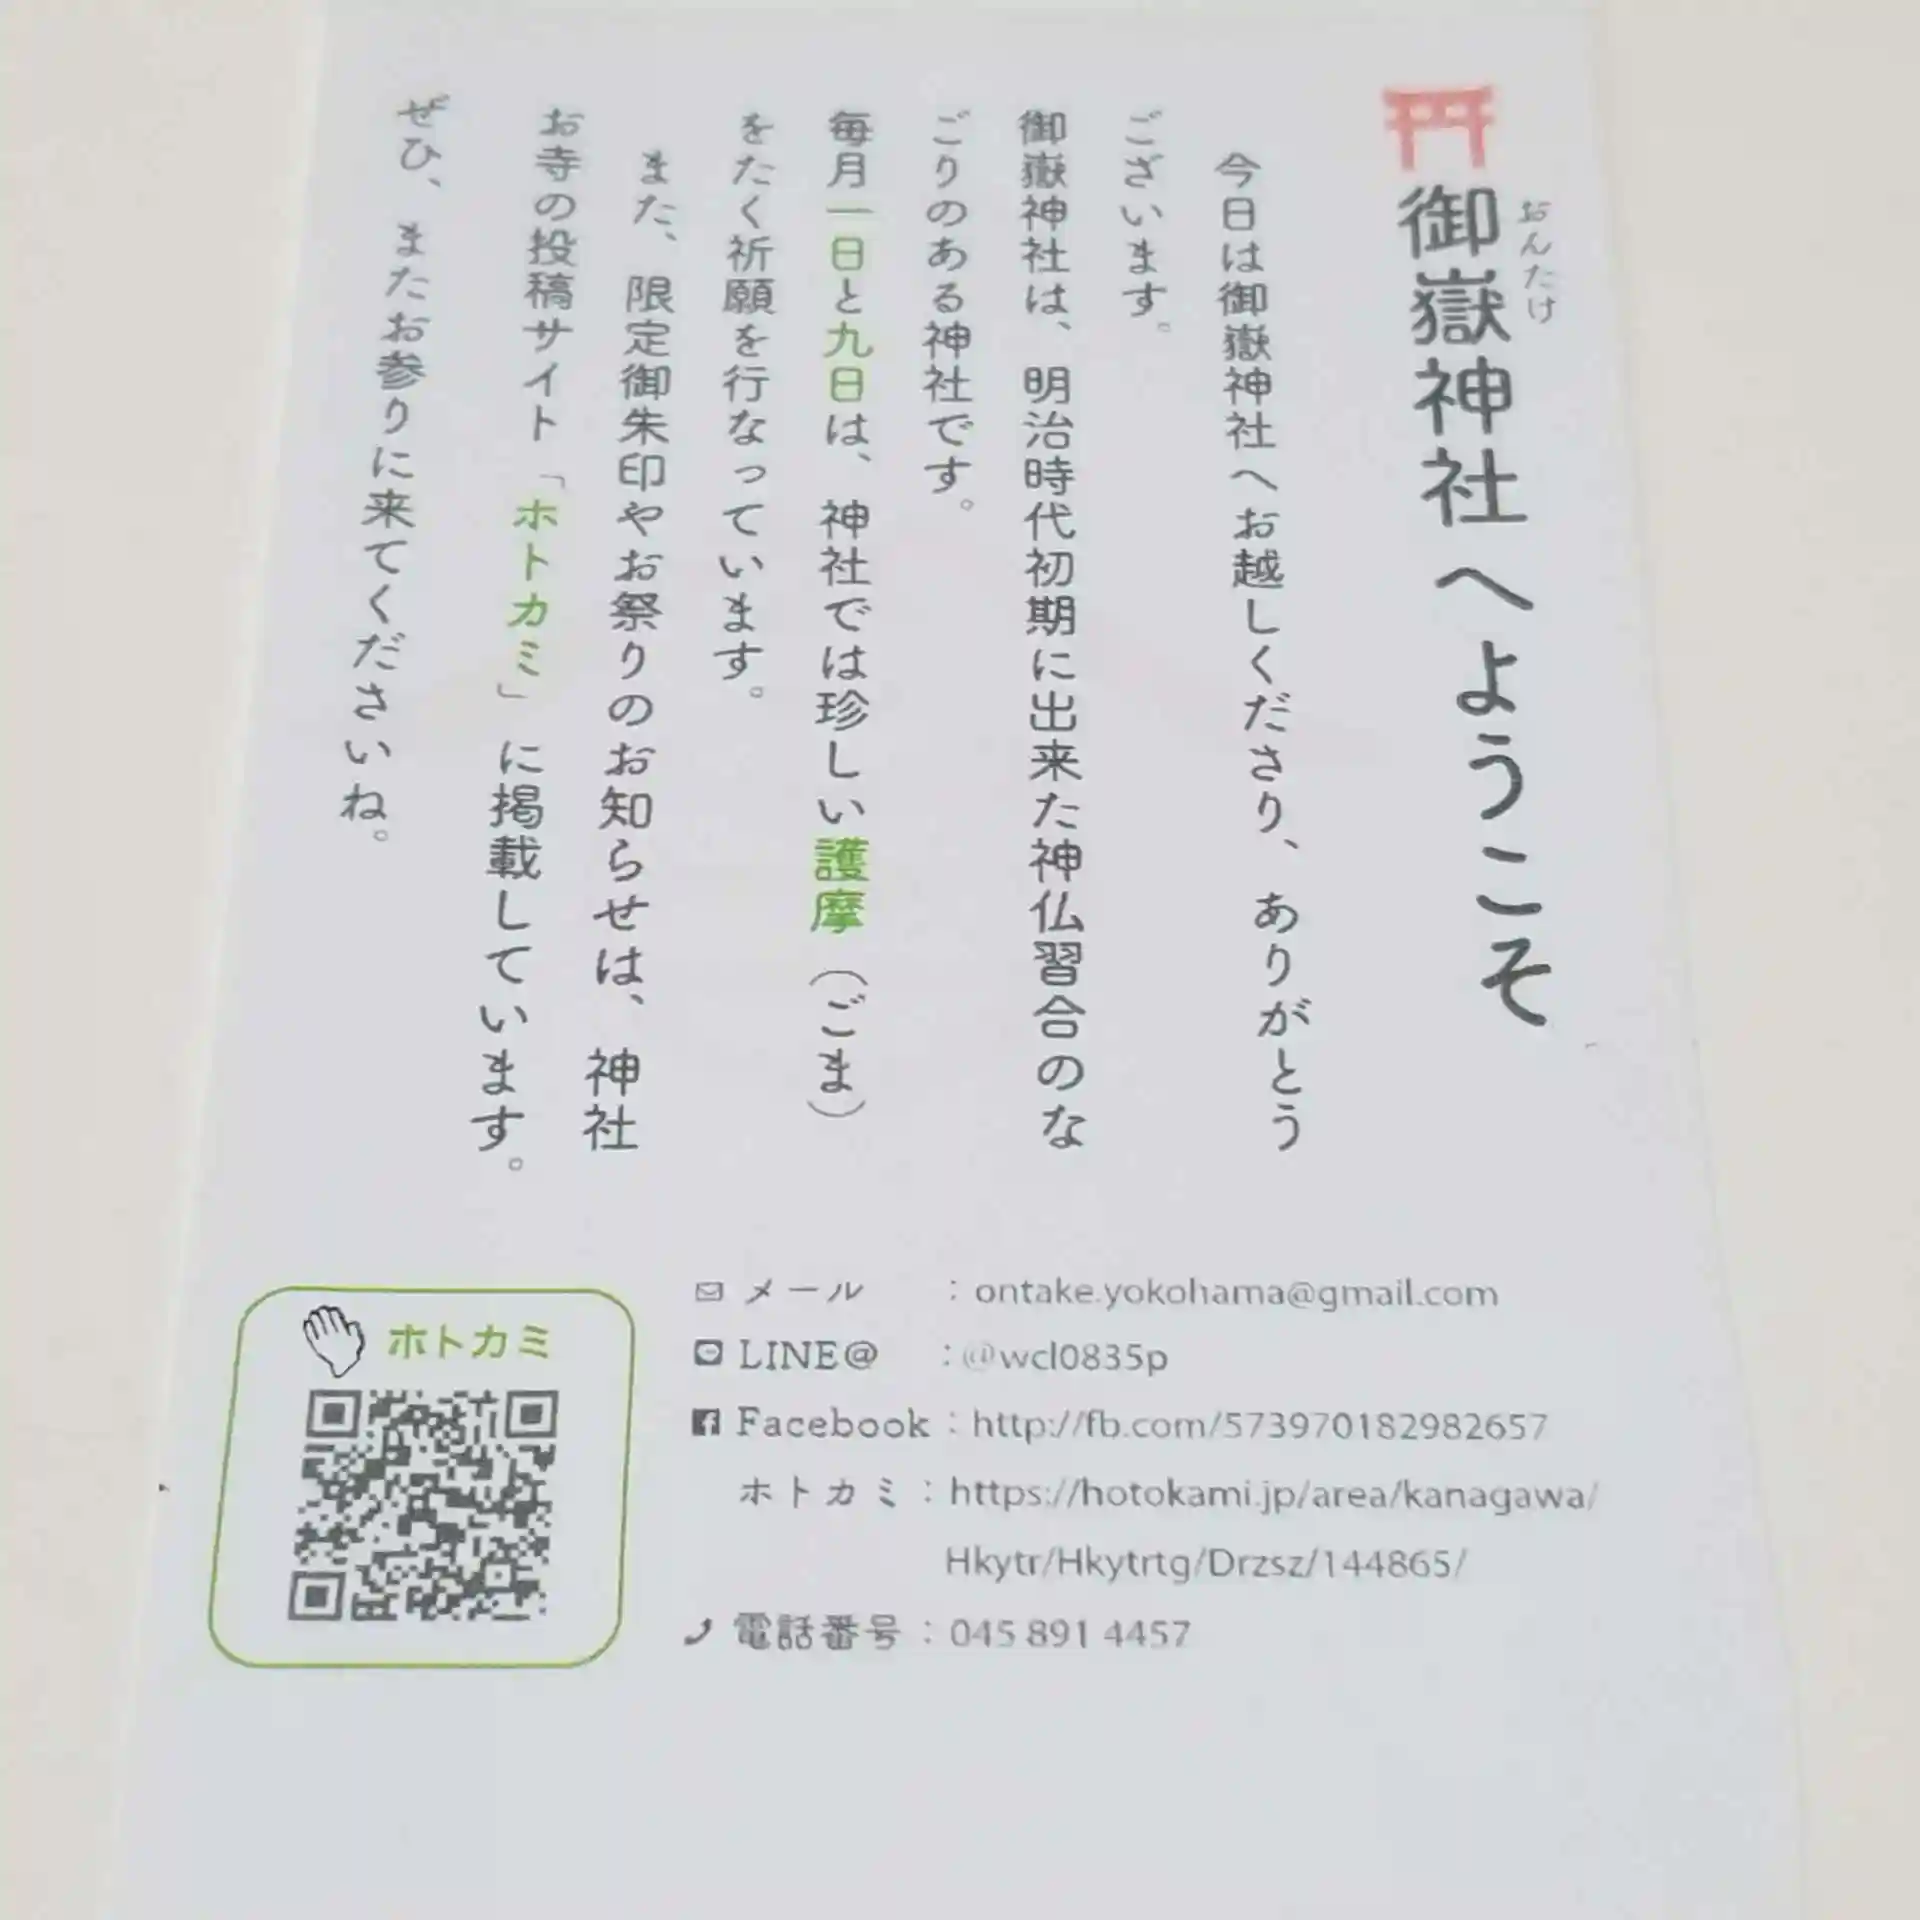 御嶽神社へようこそ
おんたけ
今日は御嶽神社へお越しくださり、ありがとう
ございます。
御嶽神社は、明治時代初期に出来た神仏習合のな
ごりのある神社です。
毎月一日と九日は、神社では珍しい護摩（ごま）
をたく祈願を行なっています。
また、限定御朱印やお祭りのお知らせは、神社
お寺の投稿サイト「ホトカミ」に掲載しています。
ぜひ、またお参りに来てくださいね。
ホトカミ
メール : ontake.yokohama@gmail.com
LINE@ : @wcl0835p
Facebook : http://fb.com/573970182982657
ホトカミ : https://hotokami.jp/area/kanagawa/
Hkytr/Hkytrtg/Drzsz/144865/
電話番号 : 045 891 4457